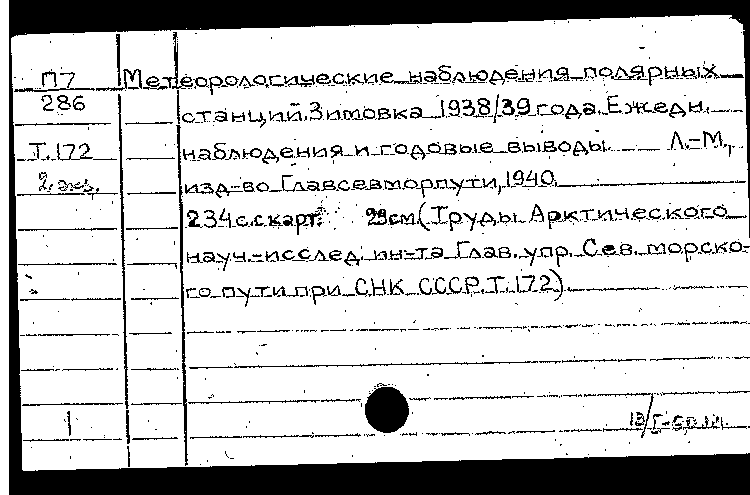 П7 Метеорологические наблюдения полярных
286 станций. Зимовка 1938/39 года. Ежедн.
Т.172 наблюдения и годовые выводы. Л.-М.,
2 экз. изд-во Главсевморпути, 1940.
234 с. с карт. 29 см. (Труды Арктического
науч.-исслед. ин-та Глав. упр. Сев. морско-
го пути при СНК СССР. Т. 172).
1